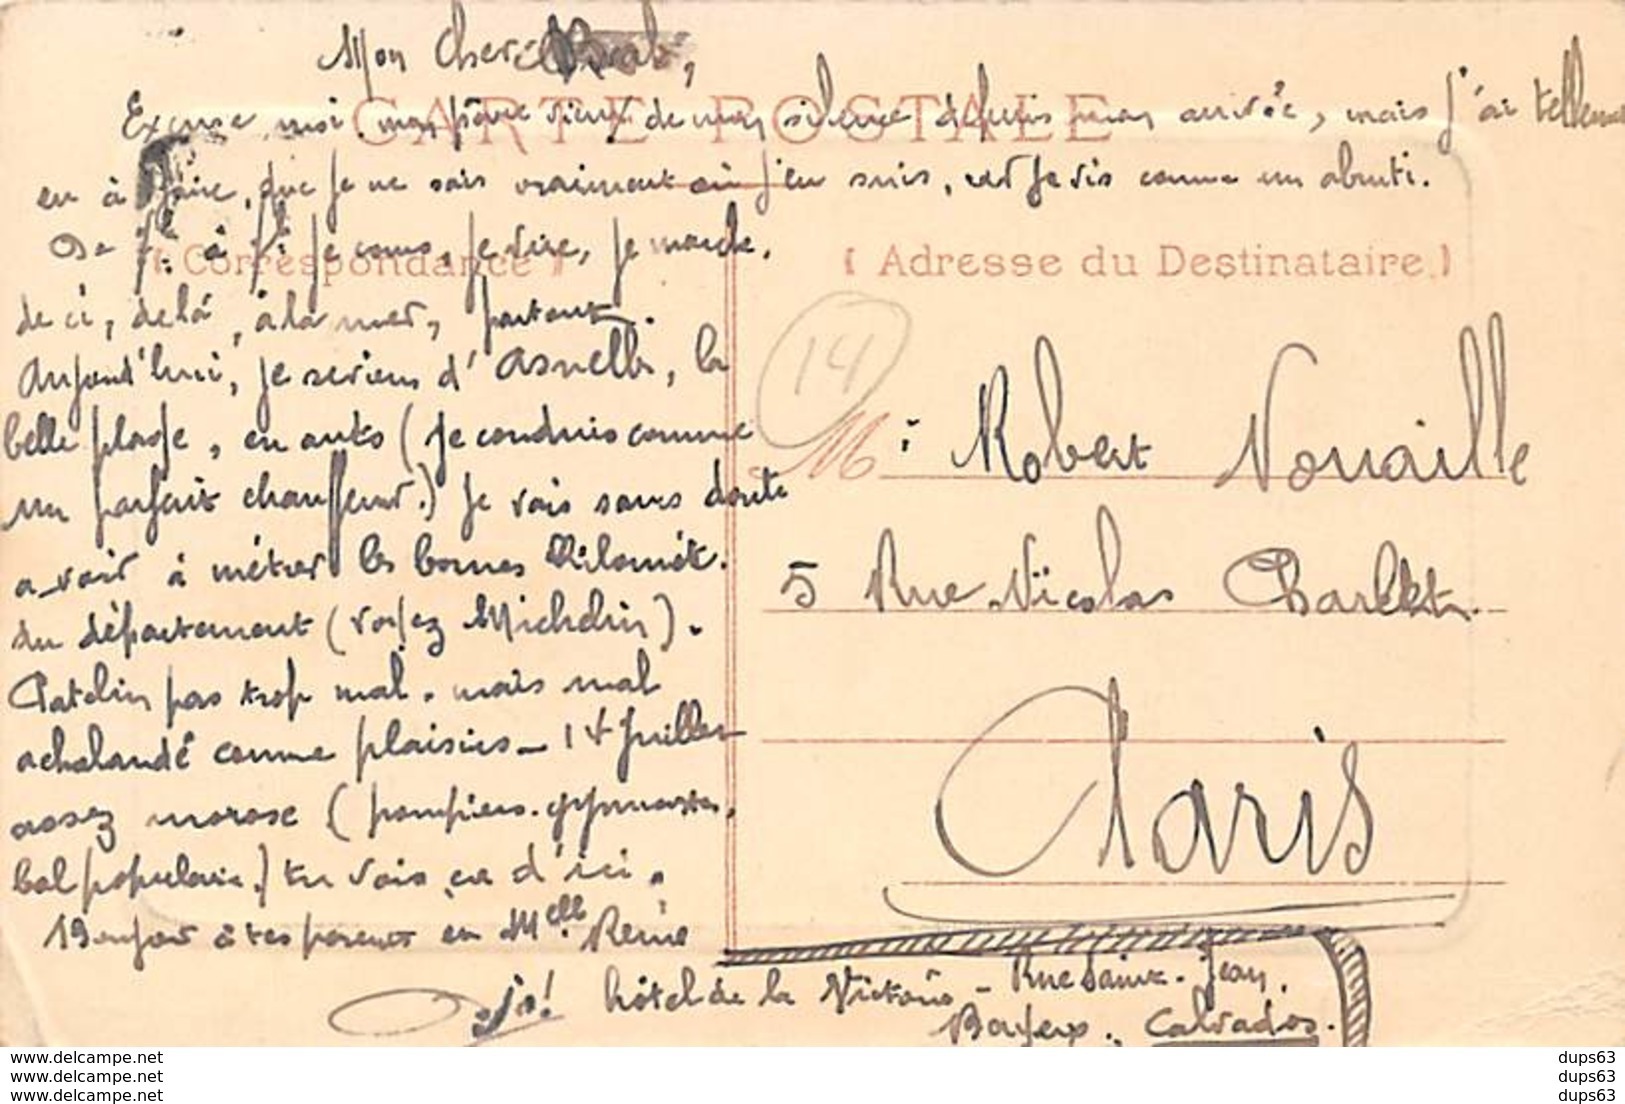 Mon cher
Excuse moi, mon pauvre vieux de mon silence depuis mon arrivée, mais j'ai tellement
en à faire, que je ne sais vraiment où j'en suis, et je vis comme un abruti.
De à je cours, je vire, je marche,
de ci, de là, à la mer, partout.
Aujourd'hui, je reviens d'Asnelles, la
belle plage, en auto (je conduis comme
un parfait chauffeur.) Je vais sans doute
avoir à métrer les bornes Kilomét.
du département (voyez Michelin).
Patelin pas trop mal. mais mal
achalandé comme plaisirs - 14 Juillet
assez morose (pompiers. gymnastes,
bal populaire.) tu vois ça d'ici.
à tes parents et Melle Reine
hôtel de la Victoire - Rue Saint-Jean,
Bayeux. Calvados.
CARTE POSTALE
( Correspondance )
( Adresse du Destinataire )
14
M. Robert Nouaille
5 Rue Nicolas Charlet
Paris
www.delcampe.net
www.delcampe.net
www.delcampe.net
dups63
dups63
dups63